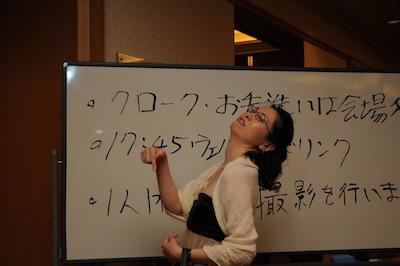 ・クローク・お手洗いは会場
・17:45 ウェ リンク
・1人1 撮影を行いま